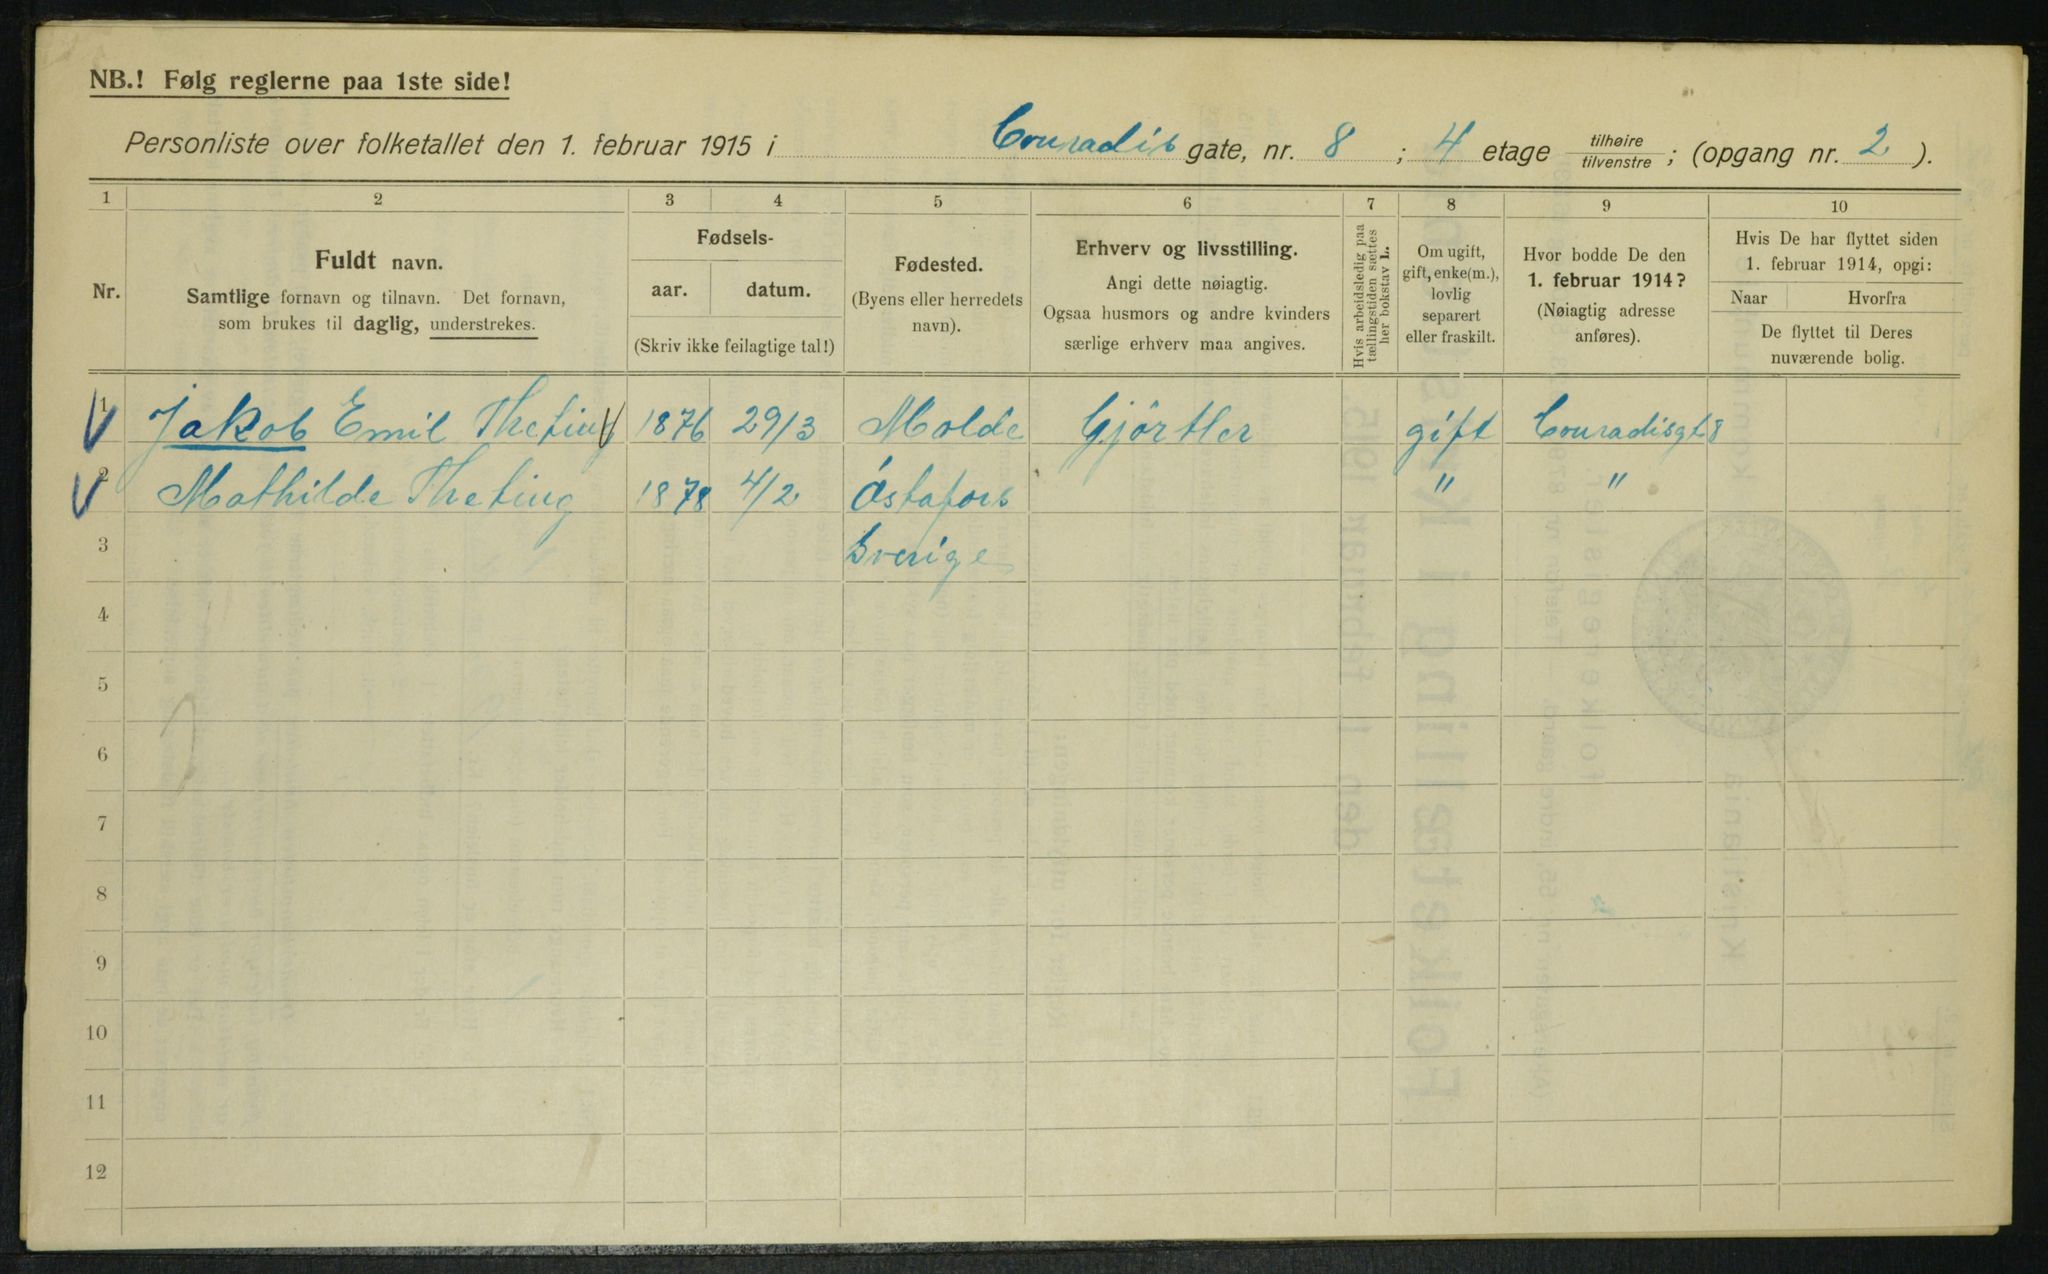 NB.! Følg reglerne paa 1ste side!
Personliste over folketallet den 1. februar 1915 i Conradis gate, nr. 8 ; 4 etage tilhøire tilvenstre ; (opgang nr. 2 ).
1 2 3 4 5 6 7 8 9 10
Nr.
Fuldt navn.
Samtlige fornavn og tilnavn. Det fornavn,
som brukes til daglig, understrekes.
Fødsels-
aar. datum.
(Skriv ikke feilagtige tal!)
Fødested.
(Byens eller herredets
navn).
Erhverv og livsstilling.
Angi dette nøiagtig.
Ogsaa husmors og andre kvinders
særlige erhverv maa angives.
Hvis arbeidsledig paa
tællingstiden sættes
her bokstav L.
Om ugift,
gift, enke(m.),
lovlig
separert
eller fraskilt.
Hvor bodde De den
1. februar 1914?
(Nøiagtig adresse
anføres).
Hvis De har flyttet siden
1. februar 1914, opgi:
Naar Hvorfra
De flyttet til Deres
nuværende bolig.
1 Jakob Emil Theting 1876 29/3 Molde Gjörtler gift Conradisgt 8
2 Mathilde Theting 1878 4/2 Östafors " "
3 Sverige
4
5
6
7
8
9
10
11
12